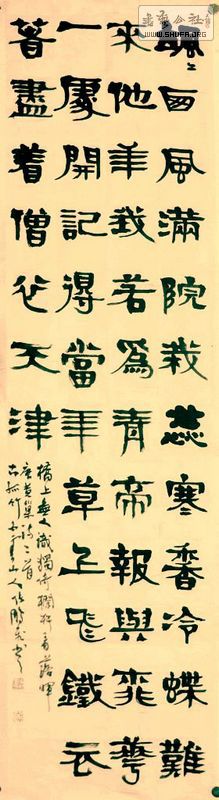 颯〻西風滿院栽蕊寒香冷蝶難
來他年我若為青帝報與桃花
一處開記得當年草上飛鐵衣
著盡着僧衣天津
橋上無人識獨倚欄杆看落暉
唐黃巢詩二首
古孤竹山人書
WWW.SHUFA.ORG